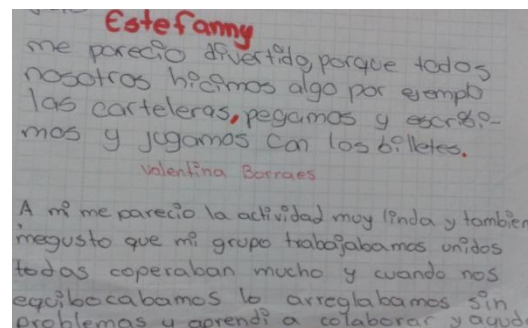 Estefanny
me parecio divertido, porque todos
nosotros hicimos algo por ejemplo
las carteleras, pegamos y escribi-
mos y jugamos con los billetes.
Valentina Borraes
A mi me parecio la actividad muy linda y tambien
megusto que mi grupo trabajabamos unidos
todas coperaban mucho y cuando nos
equibocabamos lo arreglabamos sin
problemas y aprendi a colaborar y